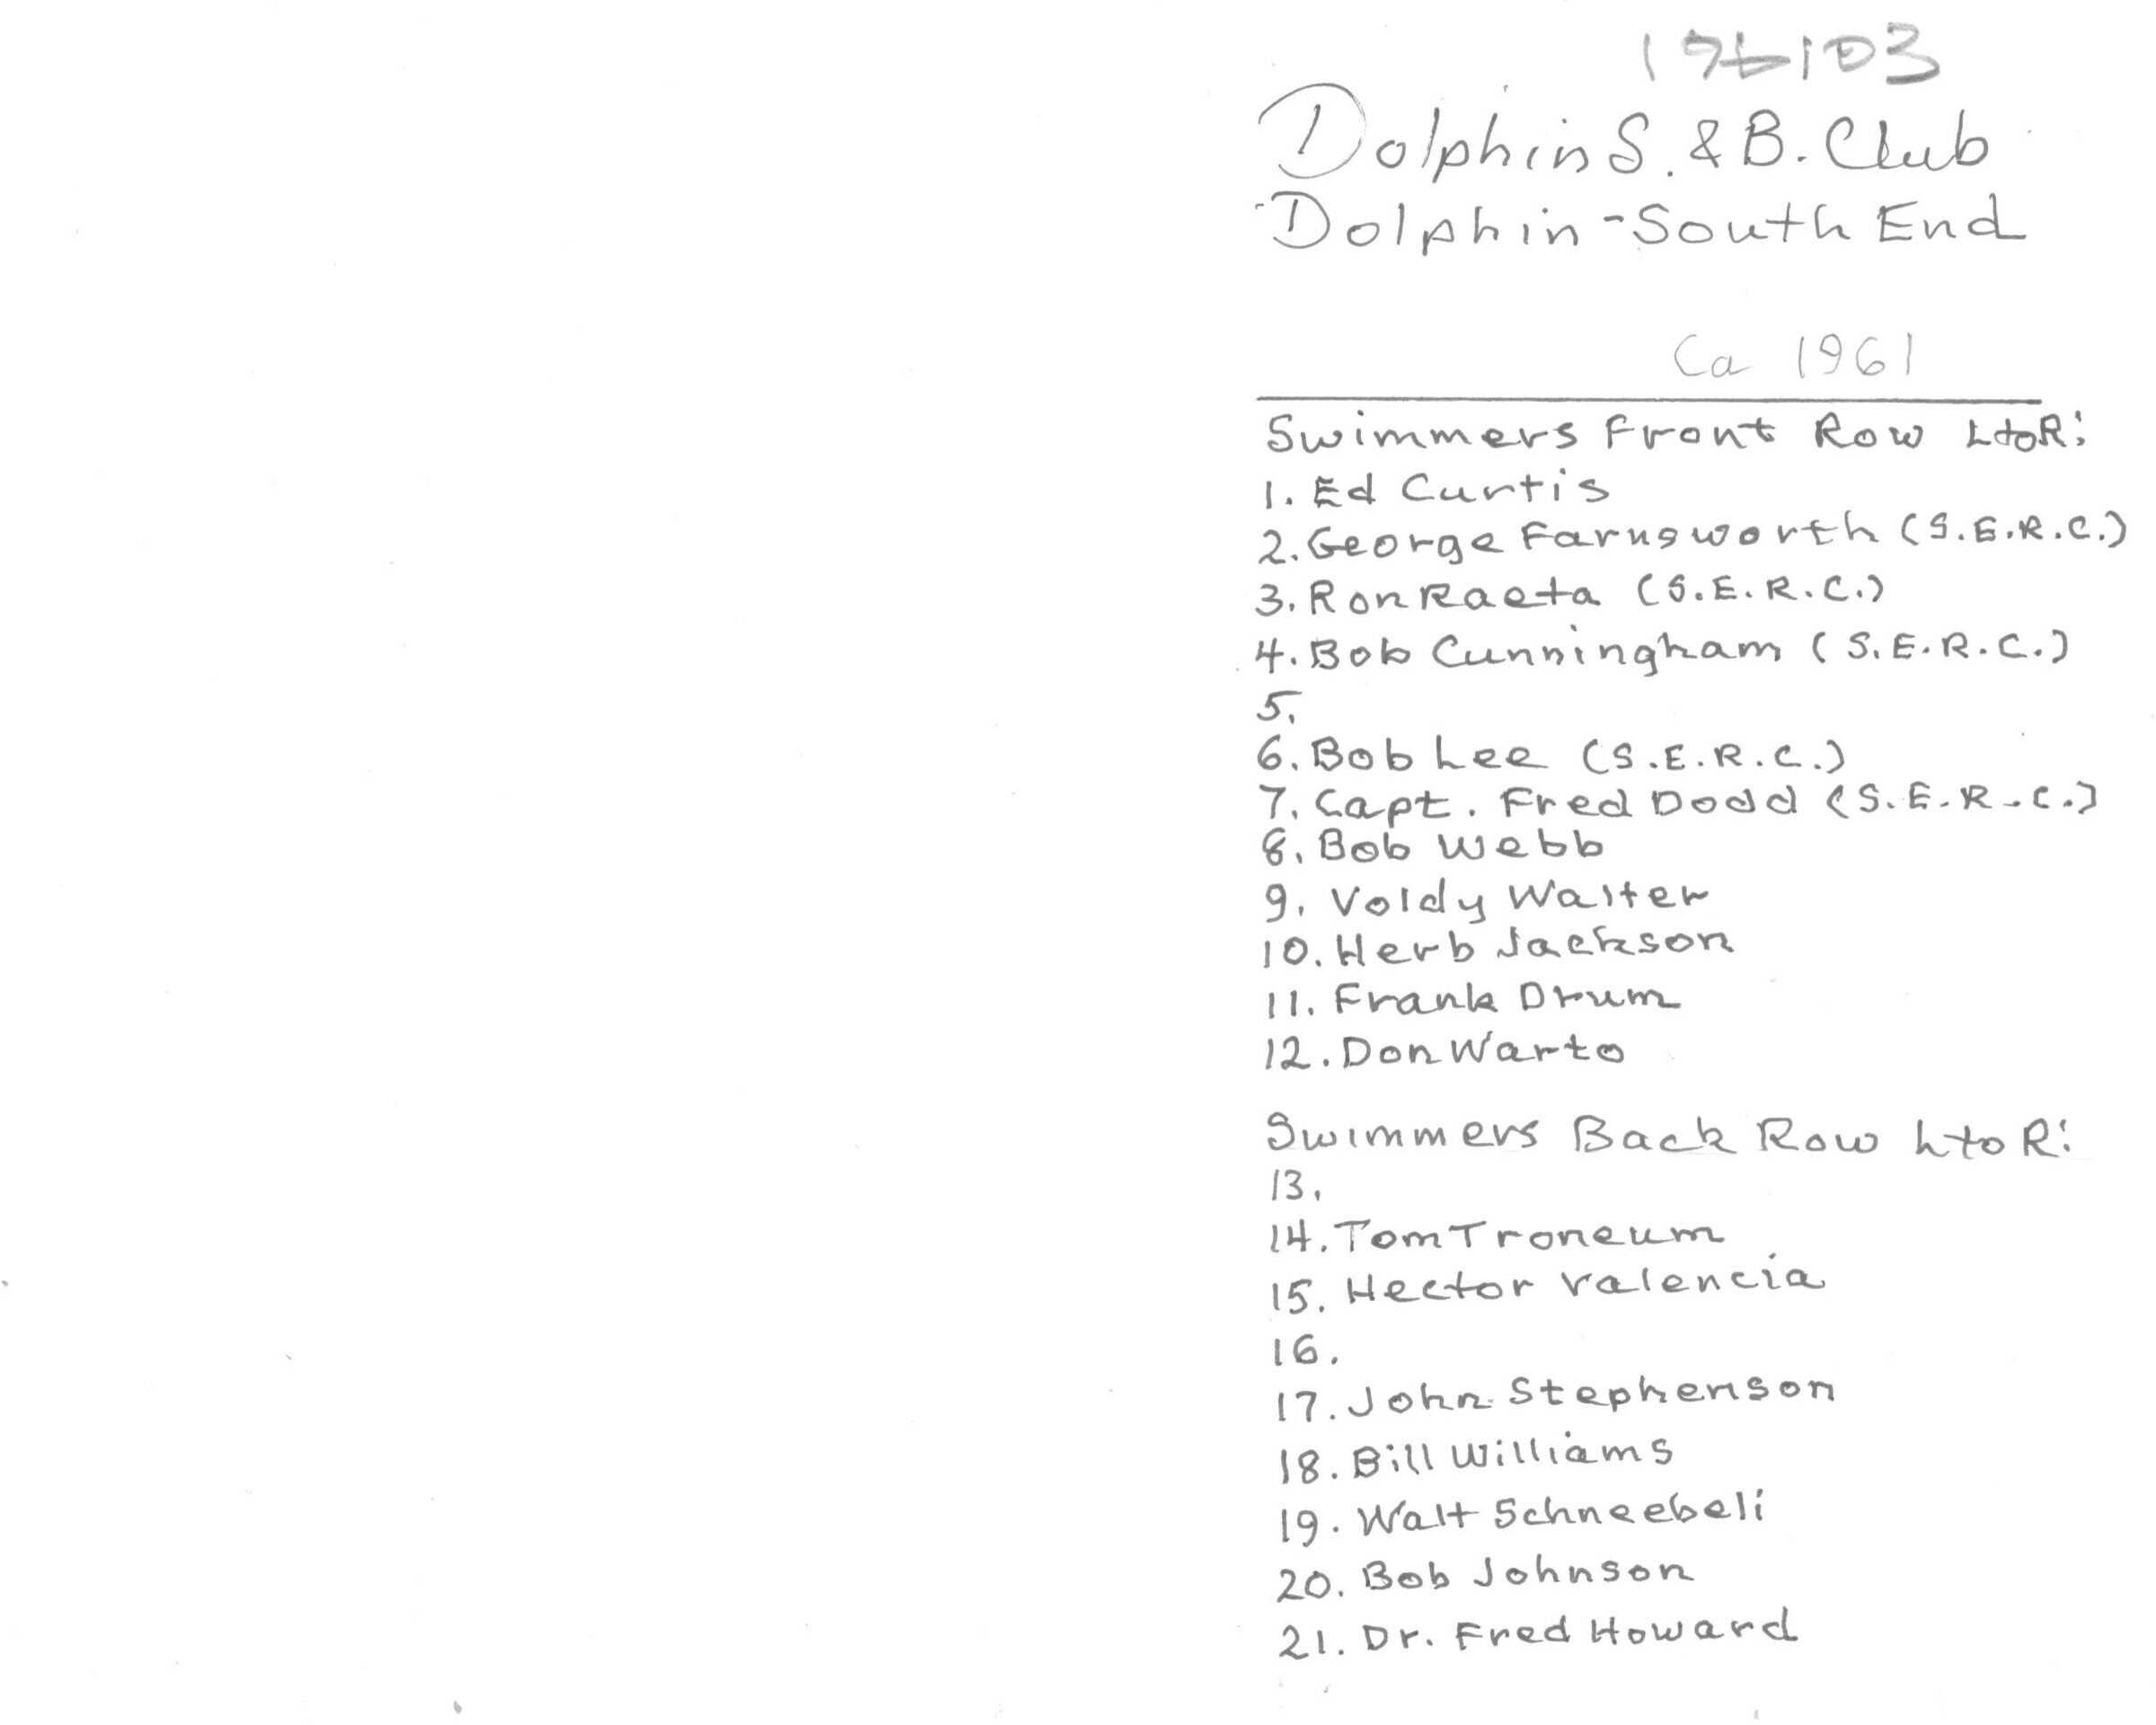 Dolphin S. & B. Club
Dolphin - South End
Ca 1961
Swimmers Front Row L to R:
1. Ed Curtis
2. George Farnsworth (S.E.R.C.)
3. Ron Raeta (S.E.R.C.)
4. Bob Cunningham (S.E.R.C.)
5.
6. Bob Lee (S.E.R.C.)
7. Capt. Fred Dodd (S.E.R.C.)
8. Bob Webb
9. Voldy Walter
10. Herb Jackson
11. Frank Drum
12. Don Warto
Swimmers Back Row L to R:
13.
14. Tom Troneum
15. Hector Valencia
16.
17. John Stephenson
18. Bill Williams
19. Walt Schneebeli
20. Bob Johnson
21. Dr. Fred Howard